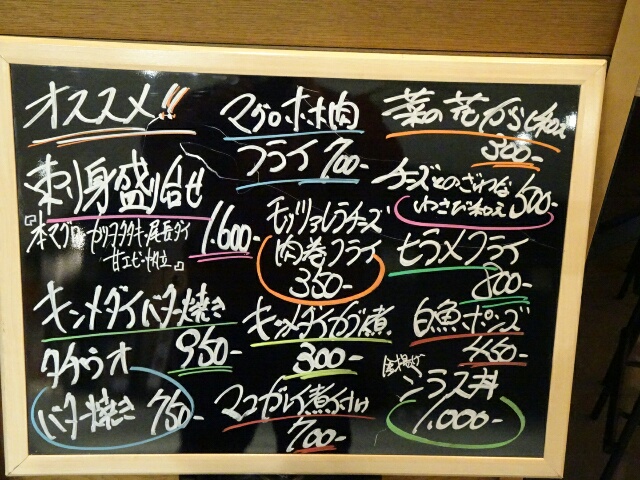 オススメ!!
刺身盛り合せ
『本マグロ・カツオタタキ・尾長ダイ
甘エビ・帆立』
1.600-
キンメダイバター焼き
950-
タチウオ
バター焼き 750-
マグロホホ肉
フライ 700-
モッツァレラチーズ
肉巻フライ
350-
キンメダイカブト煮
300-
マコガレイ煮付け
700-
菜の花からし和え
300-
チーズとのざわな
わさび和え 500-
ヒラメフライ
800-
白魚ポンズ
450-
シラス丼
1.000-